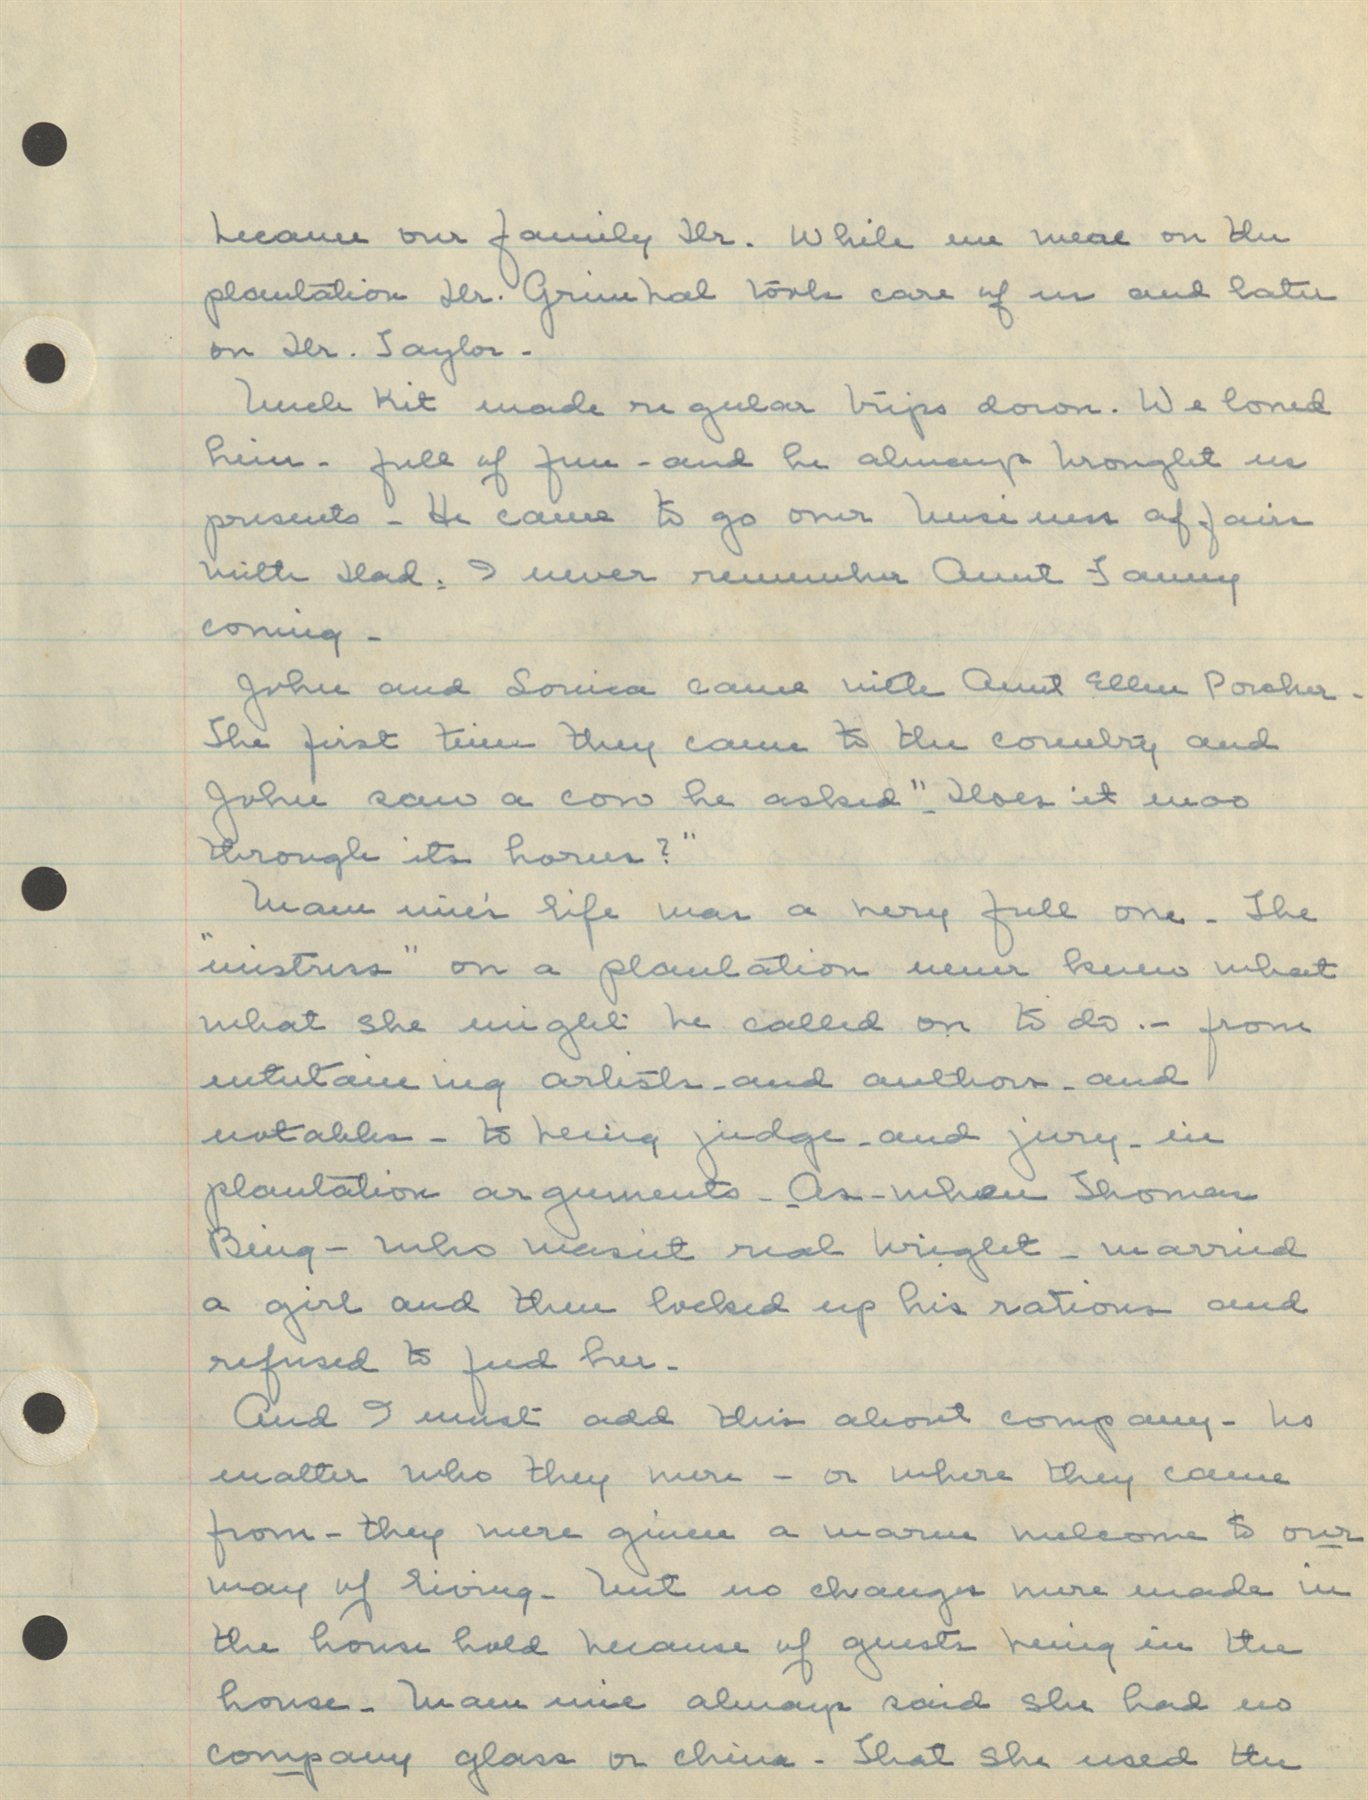 became our family Dr. While we were on the
plantation Dr. Grimbal took care of us and later
on Dr. Taylor -
Uncle Kit made regular trips down. We loved
him - full of fun - and he always brought us
presents - He came to go over business affairs
with Dad. I never remember Aunt Fanny
coming -
John and Louisa came with Aunt Ellen Porcher -
The first time they came to the country and
John saw a cow he asked "Does it moo
through its horns?"
Mam mie's life was a very full one - The
"mistress" on a plantation never knew what
what she might be called on to do. - from
entertaining artists - and authors - and
notables - to being judge - and jury - in
plantation arguments - As - when Thomas
Bing - who wasn't real bright - married
a girl and then locked up his rations and
refused to feed her -
And I must add this about company - no
matter who they were - or where they came
from - they were given a warm welcome to our
way of living - but no changes were made in
the house hold because of guests being in the
house - Mam mie always said she had no
company glass or china - That she used the